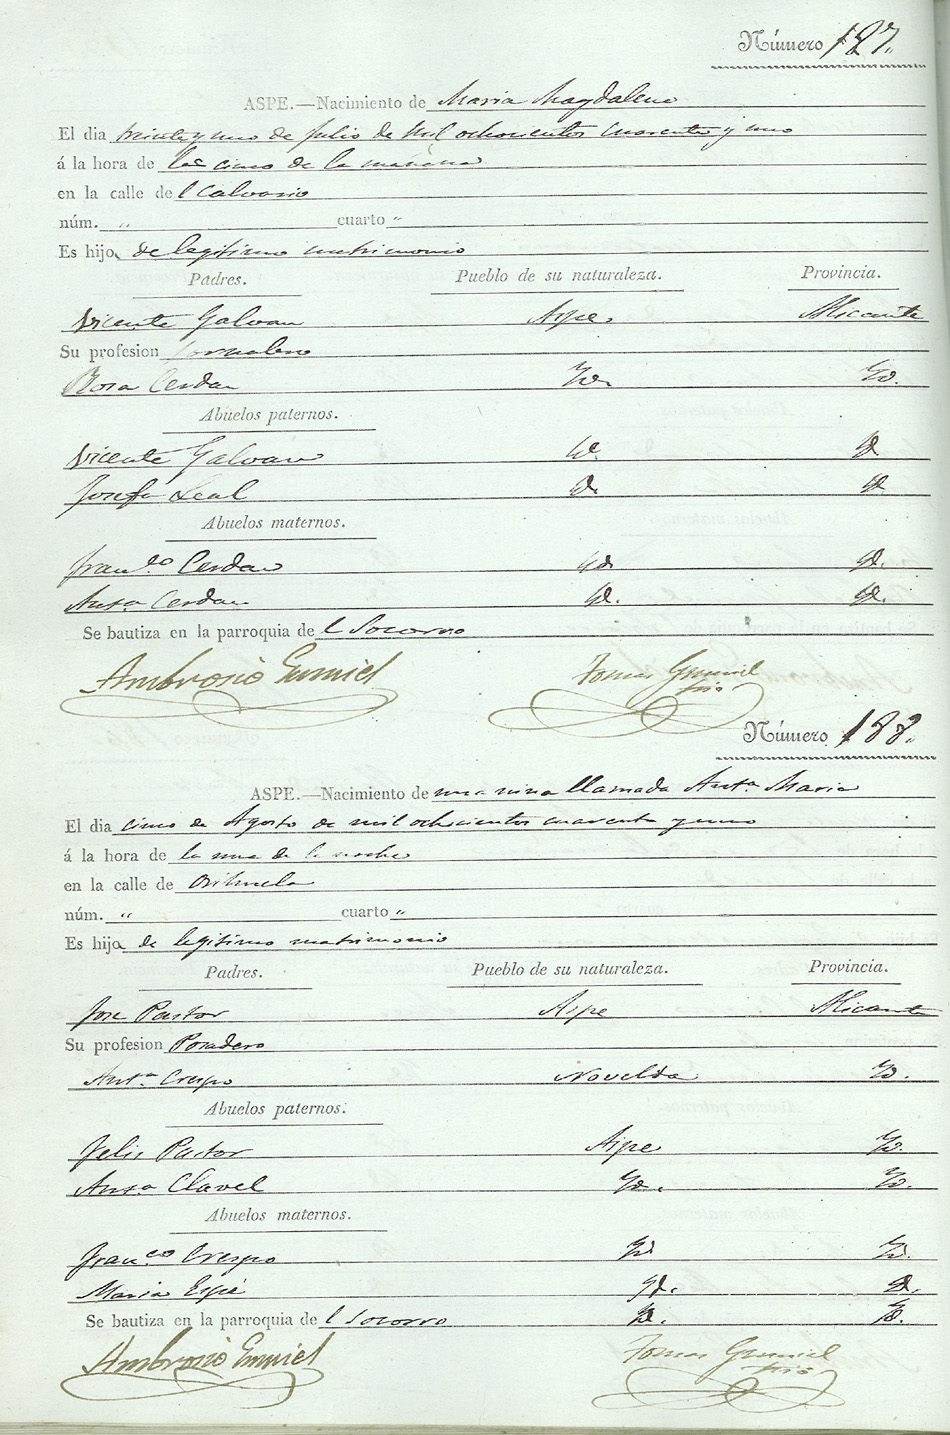 Número 187.
ASPE.—Nacimiento de Maria Magdalena
El dia treinta y uno de Julio de Mil ochocientos cuarenta y uno
á la hora de las cinco de la mañana
en la calle del Calvario
núm. " cuarto "
Es hija de legitimo matrimonio
Padres. Pueblo de su naturaleza. Provincia.
Vicente Galvan Aspe Alicante
Su profesion Jornalero
Rosa Cerdan Yd. Yd.
Abuelos paternos.
Vicente Galvan Yd. Yd.
Josefa Leal Yd. Yd.
Abuelos maternos.
Fran.co Cerdan Yd. Yd.
Ant.a Cerdan Yd. Yd.
Se bautiza en la parroquia del Socorro
Ambrosio Gumiel Tomas Gumiel
Srio.
Número 188.
ASPE.—Nacimiento de una nina llamada Ant.a Maria
El dia cinco de Agosto de mil ochocientos cuarenta y uno
á la hora de la una de la noche
en la calle de Orihuela
núm. " cuarto "
Es hija de legitimo matrimonio
Padres. Pueblo de su naturaleza. Provincia.
Jose Pastor Aspe Alicante
Su profesion Posadero
Ant.a Crespo Novelda Yd.
Abuelos paternos.
Felis Pastor Aspe Yd.
Ant.a Clavel Yd. Yd.
Abuelos maternos.
Fran.co Crespo Yd. Yd.
Maria Yd. Yd.
Se bautiza en la parroquia del Socorro Yd. Yd.
Ambrosio Gumiel Tomas Gumiel
Srio.